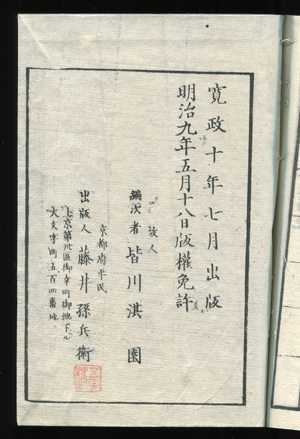 寛政十年七月出版
明治九年五月十八日版權免許
故人
編次者 皆川淇園
京都府平民
出版人 藤井孫兵衛
上京第三十區御幸町御池下ル
大文字町五百四番地